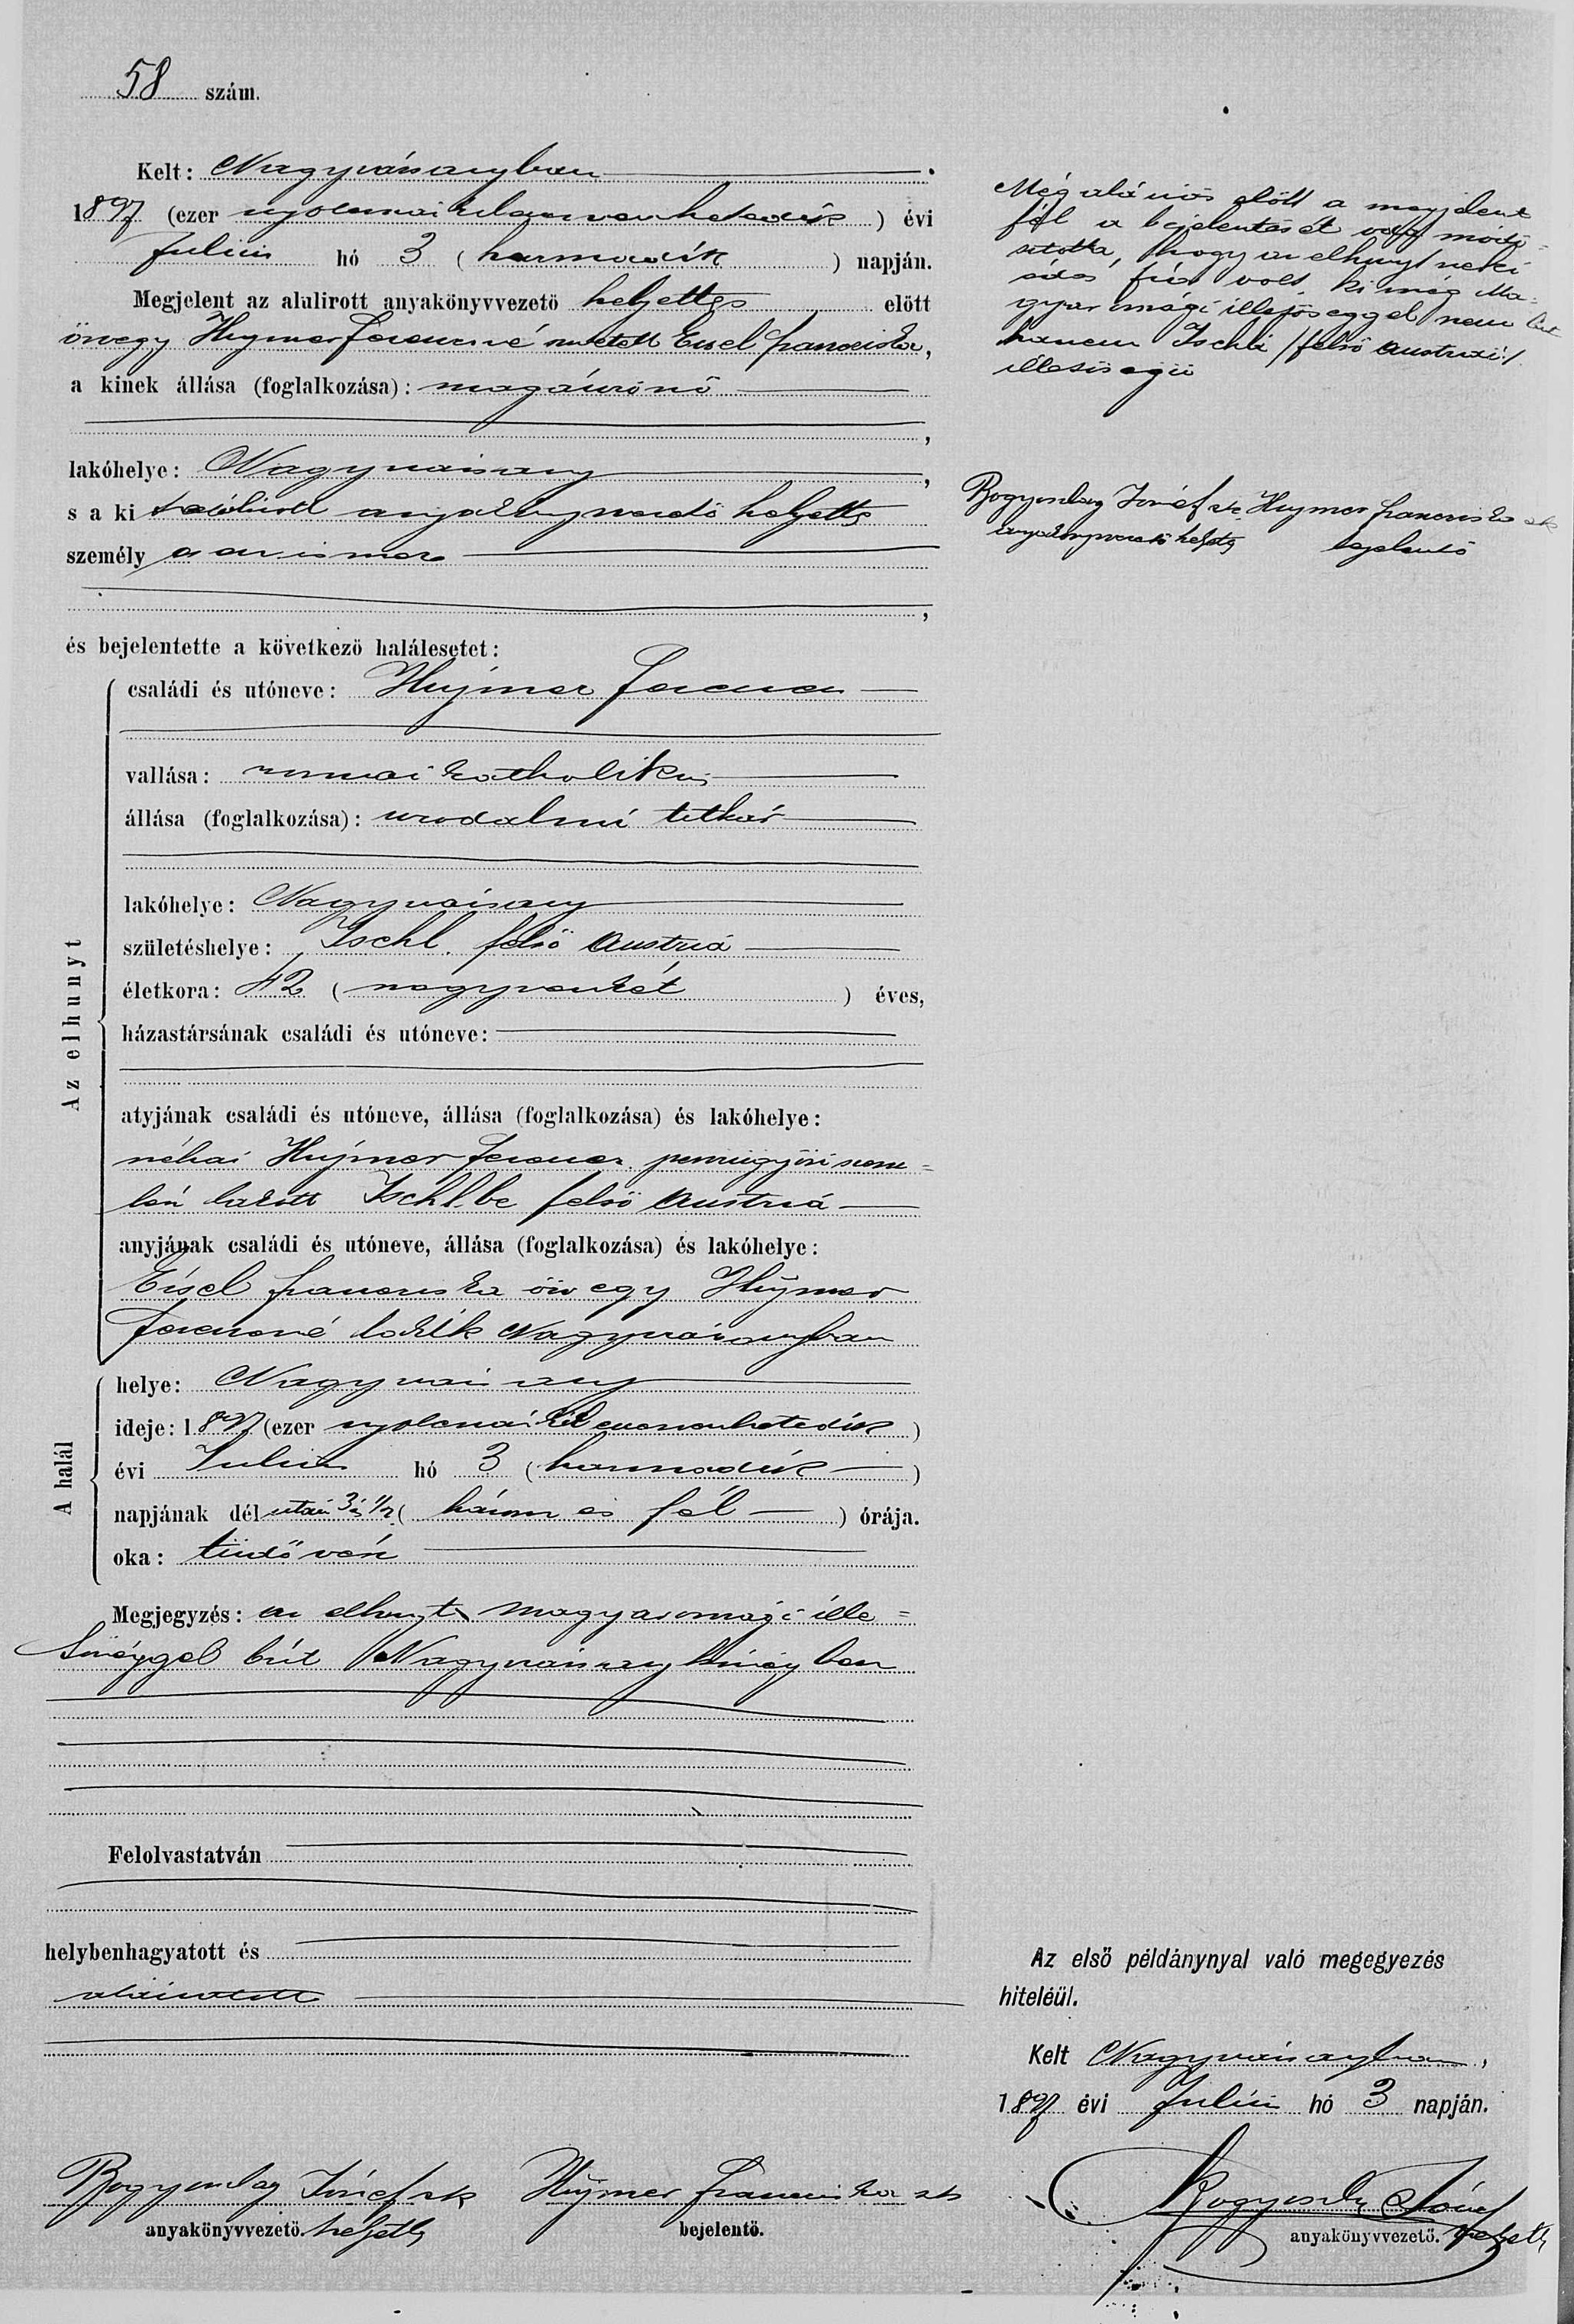 58 szám.
Kelt: Nagyvásonyban
1897 (ezer nyolcszázkilencvenhetedik) évi
Julius hó 3 (harmadik) napján.
Megjelent az alulirott anyakönyvvezető helyettes előtt
özvegy Hujmer Ferencné született Eisel Franciska,
a kinek állása (foglalkozása): magánzónő
,
lakóhelye: Nagyvásony,
s a ki alólirott anyakönyvvezető helyettes
személyesen ismer
,
és bejelentette a következő halálesetet:
Az elhunyt
családi és utóneve: Hujmer Ferencz
vallása: romai katholikus
állása (foglalkozása): uradalmi titkár
lakóhelye: Nagyvásony
születéshelye: Ischl. felső Austria
életkora: 42 (negyvenkét) éves,
házastársának családi és utóneve:
atyjának családi és utóneve, állása (foglalkozása) és lakóhelye:
néhai Hujmer Ferencz
lakott Ischlbe felső Austriá
anyjának családi és utóneve, állása (foglalkozása) és lakóhelye:
Eisel Franciska özvegy Hujmer
Ferencné lakik Nagyvásonyban
A halál
helye: Nagyvásony
ideje: 1897 (ezer nyolcszázkilencvenhetedik)
évi Julius hó 3 (harmadik)
napjának dél után 3 és 1/2 (három és fél) órája.
oka: tüdővész
Megjegyzés: az elhunyt magyarországi ille=
tőséggel birt Nagyvásony községben
Felolvastatván
helybenhagyatott és
aláiratott
Bogyoszlag József sk Hujmer Franciska sk
anyakönyvvezető. helyettes bejelentő.
Még aláirás előtt a megjelent
fél a bejelentését úgy módo=
sitotta, hogy az elhunyt neki
fia volt, ki még Ma=
gyarországi illetőséggel nem birt
hanem Ischli /felső austriai/
illetőségü
József sk. Hujmer Franciska sk
anyakönyvvezető helyettes bejelentő
Az első példánynyal való megegyezés
hiteléül.
Kelt Nagyvásonyban,
1897 évi Julius hó 3 napján.
József
anyakönyvvezető. helyettes